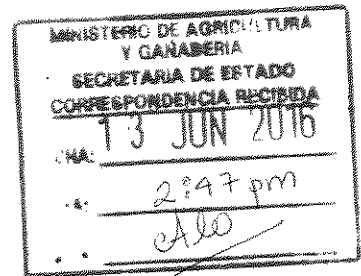 MINISTERIO DE AGRICULTURA
Y GANADERIA
SECRETARIA DE ESTADO
CORRESPONDENCIA RECIBIDA
13 JUN 2016
HA:
2:47 pm